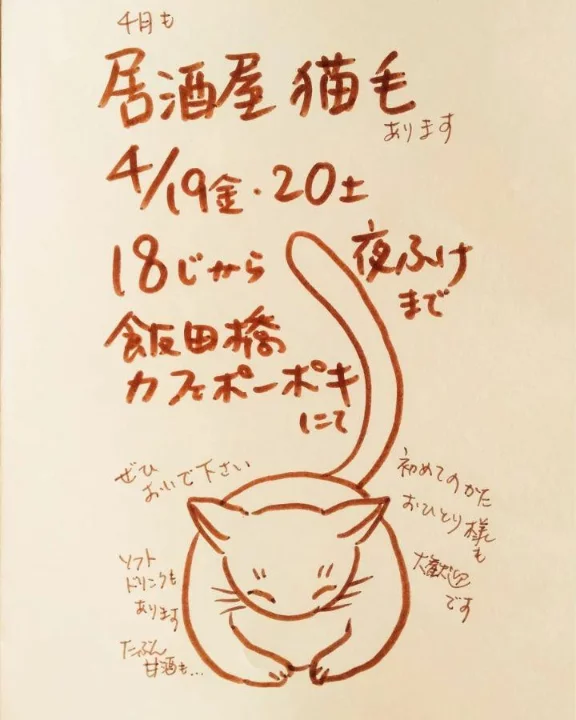 4月も
居酒屋 猫毛
あります
4/19金・20土
18じから
夜ふけ
まで
飯田橋
カフェポーポキ
にて
ぜひ
おいで下さい
初めてのかた
おひとり様も
大歓迎
です
ソフト
ドリンクも
あります
たぶん
甘酒も...